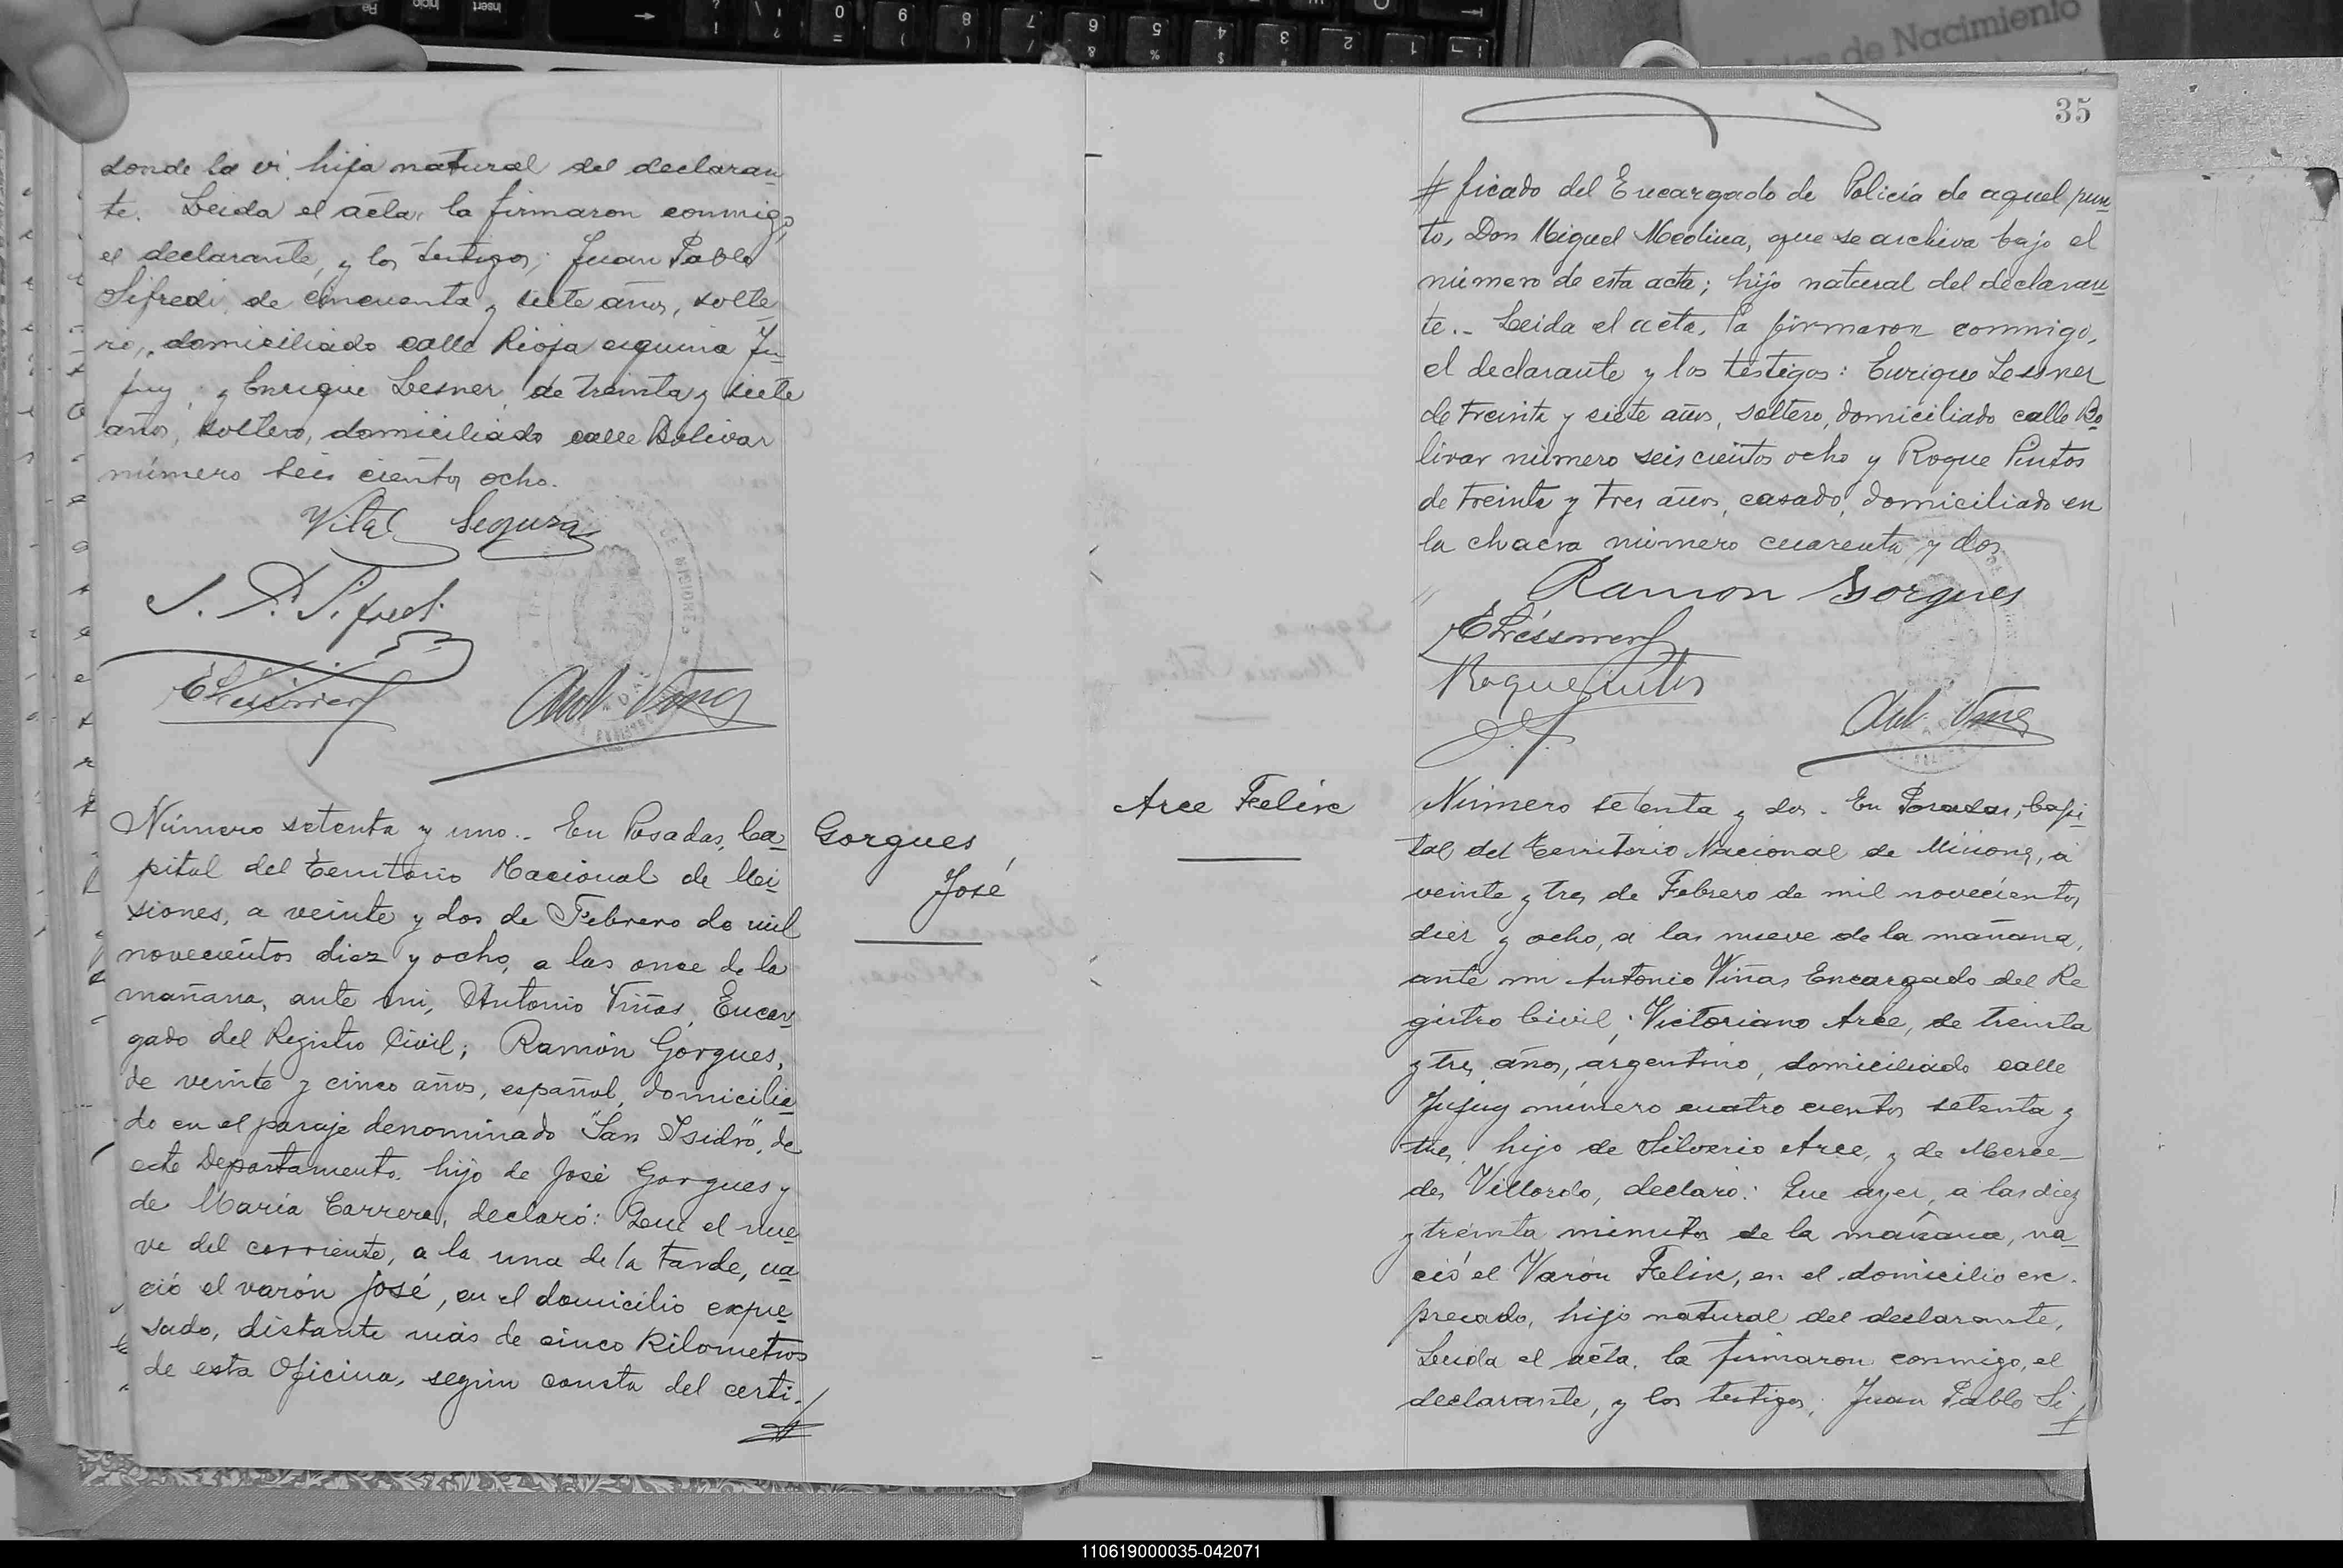 de Nacimiento
donde la vi, hija natural del declaran
te. Leida el acta, la firmaron conmigo,
el declarante, y los testigos; Juan Pablo
Sifredi, de cincuenta y siete años, solte
ro, domiciliado calle Rioja esquina Ju-
juy, y Enrique Lesner, de treinta y siete
años, soltero, domiciliado calle Bolivar
número seis cientos ocho.
Vital Segura
J. P. Sifredi
Número setenta y uno.- En Posadas, Ca-
pital del Territorio Nacional de Mi-
siones, a veinte y dos de Febrero de mil
novecientos diez y ocho, a las once de la
mañana, ante mi, Antonio Viñas, Encar-
gado del Registro Civil; Ramón Gorgues,
de veinte y cinco años, español, domicilia-
do en el paraje denominado "San Isidro", de
este Departamento, hijo de José Gorgues y
de María Carrera, declaró: Que el nue-
ve del corriente, a la una de la tarde, na-
ció el varón José, en el domicilio expre-
sado, distante más de cinco Kilometros
de esta Oficina, según consta del certi-
#
Gorgues
José
35
# ficado del Encargado de Policía de aquel pun-
to, Don Miguel Medina, que se archiva bajo el
número de esta acta; hijo natural del declaran-
te.- Leida el acta, la firmaron conmigo,
el declarante y los testigos: Enrique Lesner
de treinta y siete años, soltero, domiciliado calle Bo-
livar número seiscientos ocho y Roque Pintos
de treinta y tres años, casado, domiciliado en
la chacra número cuarenta y dos
Ramon Gorgues
Roque Pintos
Arce Felix
Número setenta y dos. En Posadas, Capi-
tal del Territorio Nacional de Misiones, a
veinte y tres de Febrero de mil novecientos
diez y ocho, a las nueve de la mañana,
ante mi Antonio Viñas Encargado del Re
gistro Civil; Victoriano Arce, de treinta
y tres años, argentino, domiciliado calle
Jujuy número cuatro cientos setenta y
tres, hijo de Silverio Arce, y de Merce-
des Villordo, declaró: Que ayer, a las diez
y treinta minutos de la mañana, na-
ció el Varón Felix, en el domicilio ex-
presado, hijo natural del declarante,
Leida el acta, la firmaron conmigo, el
declarante, y los testigos; Juan Pablo Si
110619000035-042071